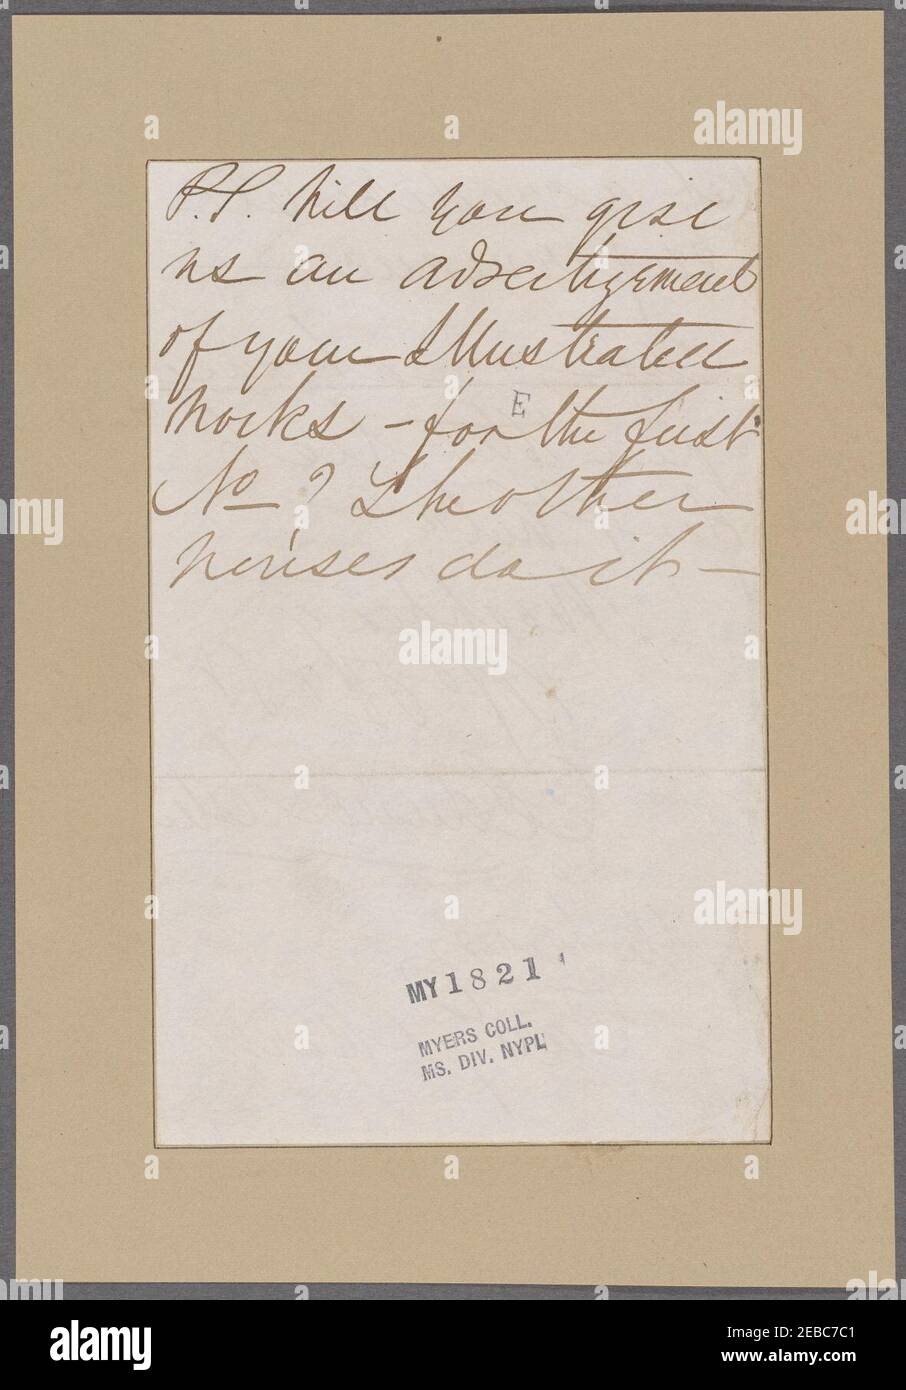 P.S. Will you give
us an advertizement
of your Illustrated
Works - for the first
E
No ? The other
houses do it -
MY 1821
MYERS COLL.
MS. DIV. NYPL
alamy
alamy
alamy
alamy
alamy
a
a
a
a
a
a
a
a
a
alamy
Image ID: 2EBC7C1
www.alamy.com